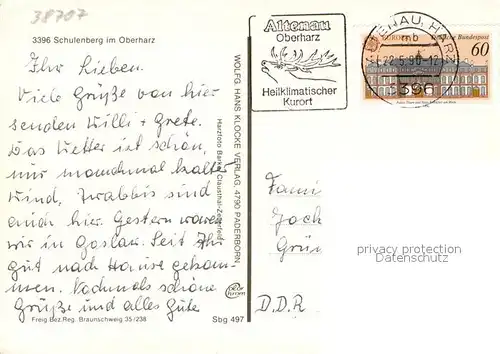 38707
3396 Schulenberg im Oberharz
Ihr Lieben.
Viele Grüße von hier
senden Willi + Grete.
Das Wetter ist schön,
nur manchmal kalter
Wind, sind
auch hier. Gestern waren
wir in Goslar. Seit Ihr
gut nach Hause gekom-
men. Nochmals schöne
Grüße und alles Gute
Freig Bez.Reg. Braunschweig 35/238
Sbg 497
Harzfoto Barke, Clausthal-Zellerfeld
WOLFG HANS KLOCKE VERLAG, 4790 PADERBORN
Altenau
Oberharz
Heilklimatischer
Kurort
ALTENAU, HARZ
mb
22.5.90-12
3396
EUROPA Deutsche Bundespost
60
Fami
Joch
Grün
D.D.R
privacy protection
Watermark